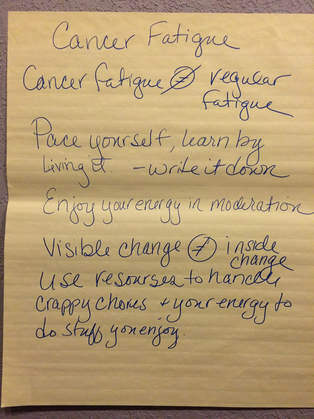 Cancer Fatigue
Cancer fatigue ≠ regular
fatigue
Pace yourself, learn by
living it. - write it down
Enjoy your energy in moderation
Visible change ≠ inside
change
Use resourses to handle
crappy chores + your energy to
do stuff you enjoy.